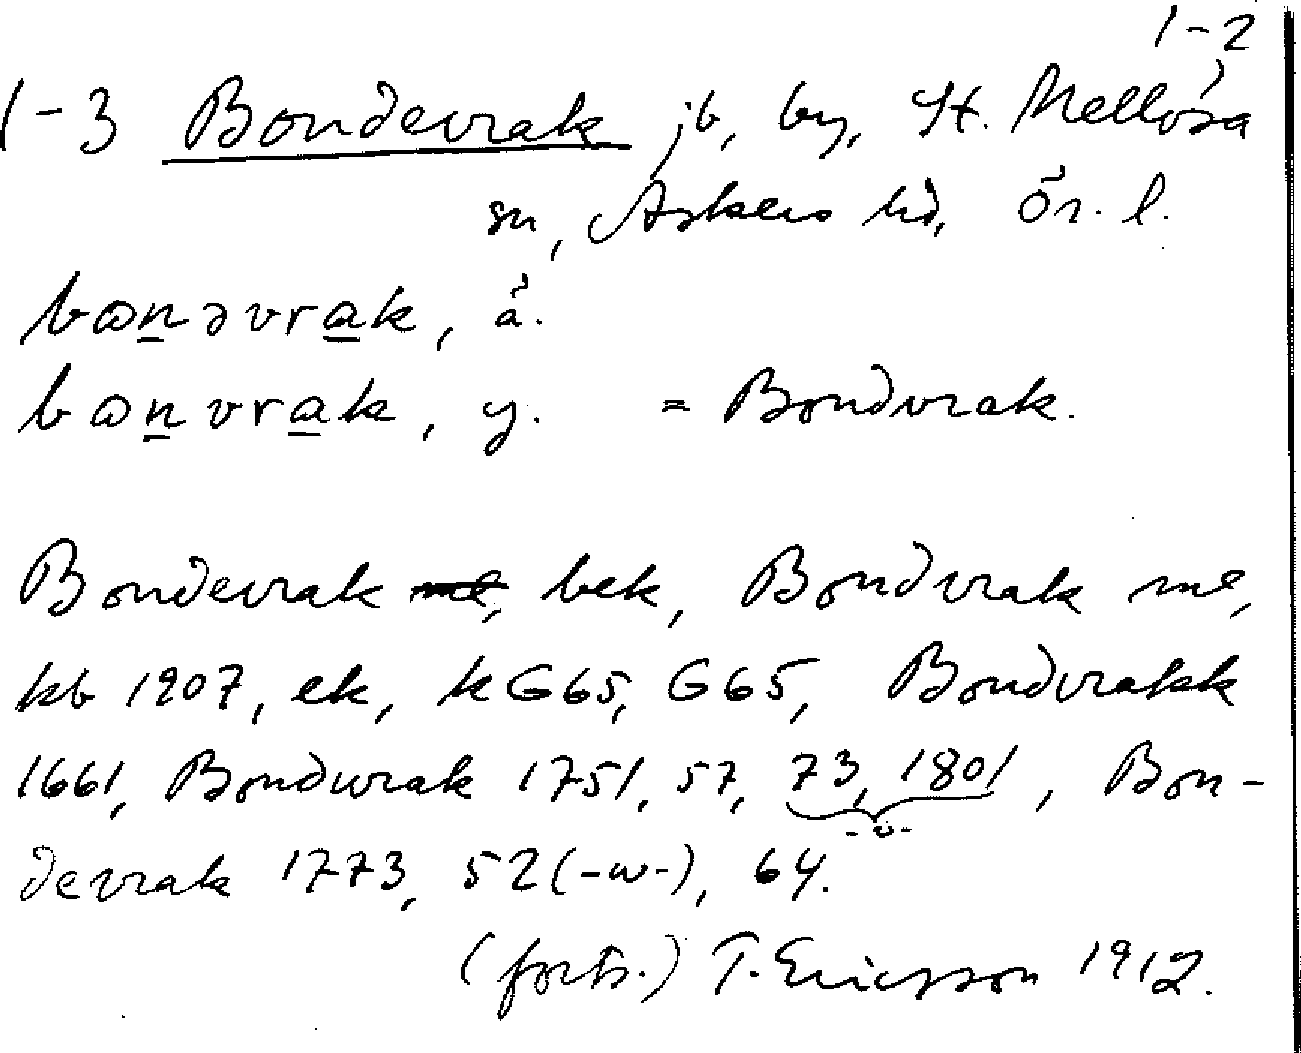 1-2
1-3 Bondevrak jb, by, St. Mellösa
sn, Askers hd, Ör. l.
bωnəvrak, ä.
bωnvrak, y. = Bondvrak.
Bondevrak bek, Bondvrak me,
kb 1907, ek, kG65, G65, Bondvrakk
1661, Bondvrak 1751, 57, 73, 1801, Bon-
-w-
devrak 1773, 52(-w-), 64.
(forts.) T. Ericsson 1912.